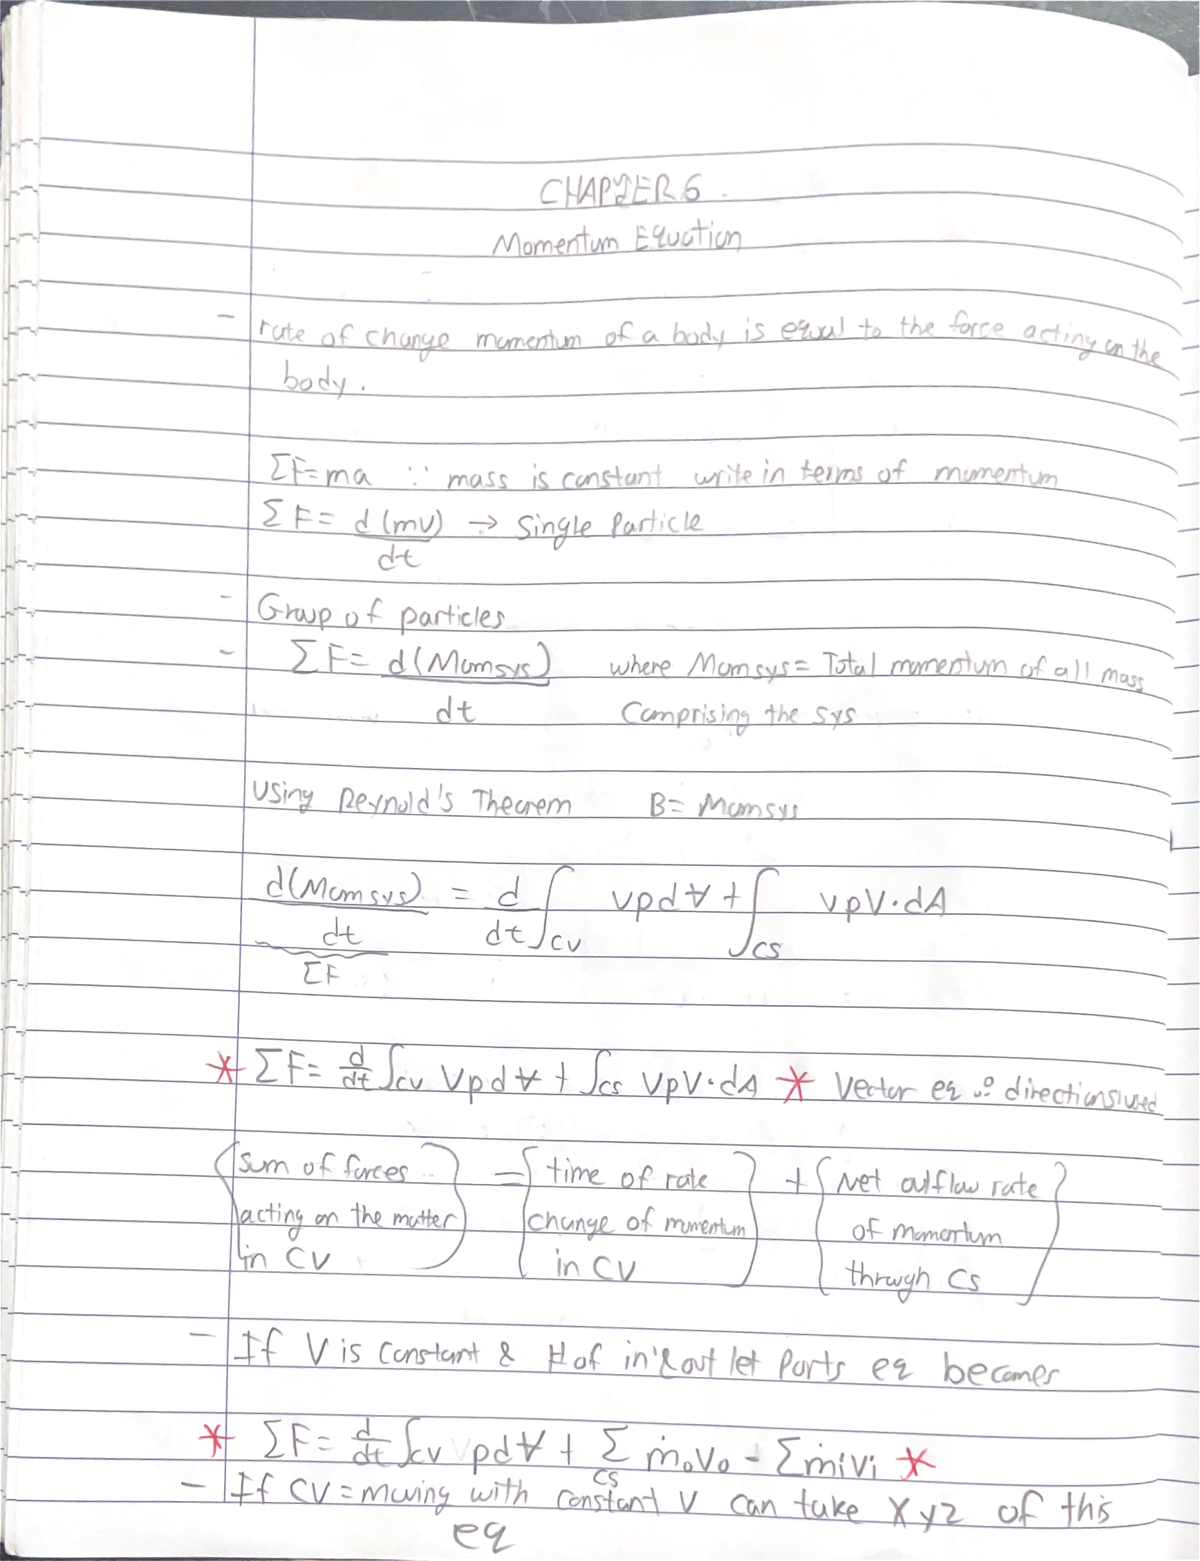 CHAPTER 6
Momentum Equation
- rate of change momentum of a body is equal to the force acting on the
body.
ΣF=ma ∵ mass is constant write in terms of momentum
ΣF= d(mv)/dt → Single Particle
- Group of particles
- ΣF= d(Momsys)/dt where Momsys= Total momentum of all mass
Comprising the sys
Using Reynold's Theorem B= Momsys
d(Momsys)/dt = d/dt ∫cv vρd∀ + ∫cs vρV·dA
ΣF
* ΣF= d/dt ∫cv Vρd∀ + ∫cs VρV·dA * Vector eq ∴ directions used
{sum of forces acting on the matter in CV} = {time of rate change of momentum in CV} + {Net outflow rate of momentum through CS}
- If V is constant & # of in & out let Ports eq becomes
* ΣF= d/dt ∫cv Vρd∀ + Σcs ṁoVo - Σṁivi *
- If CV = moving with constant V can take X y z of this
eq